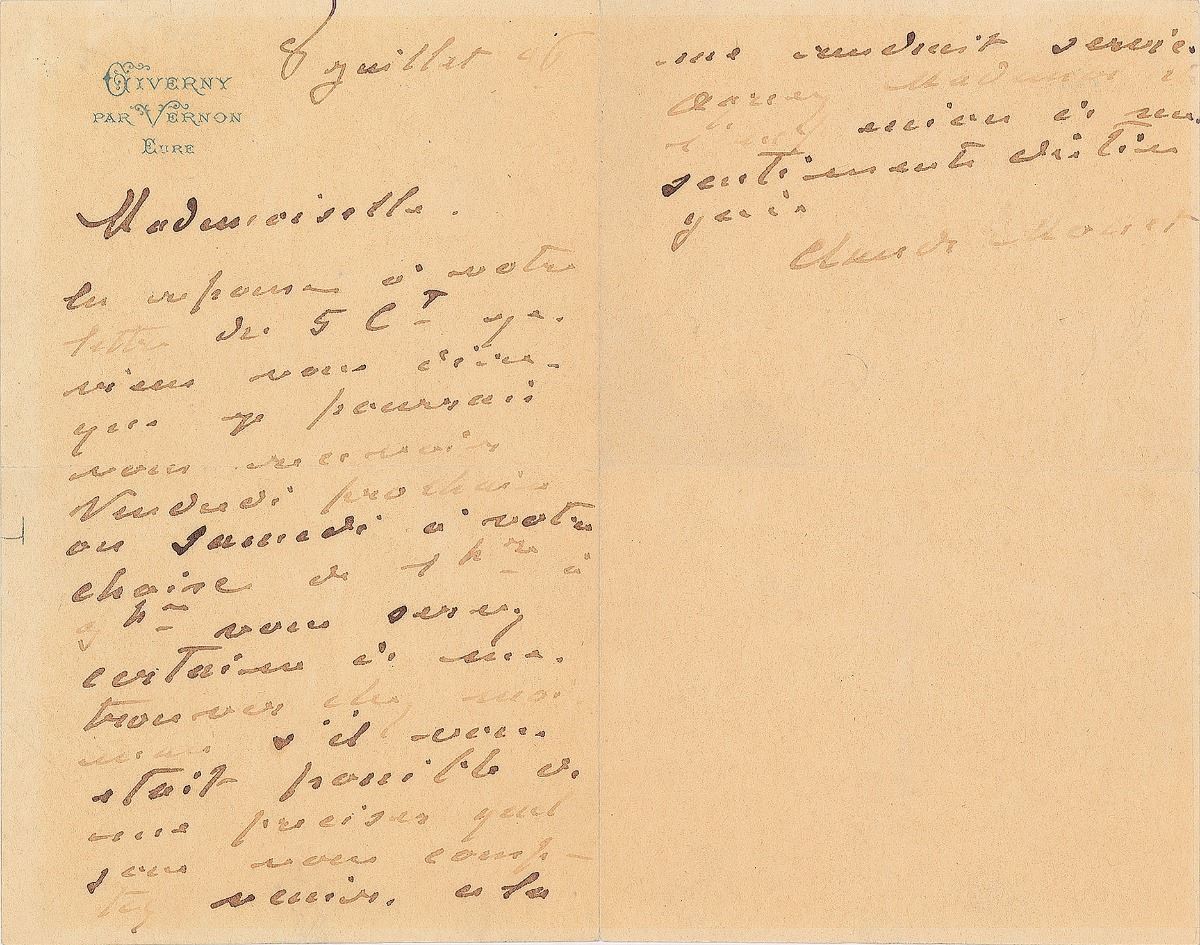 GIVERNY
PAR VERNON
EURE
8 Juillet 96
Mademoiselle.
En reponse à votre
lettre de 5 Ct je
viens vous dire
que je pourrai
vous recevoir
Vendredi prochain
ou Samedi à votre
choix de 1 hre à
hre vous serez
certaine de me
trouver chez moi
mais s'il vous
etait possible de
me preciser quel
jour vous comp-
tez venir. cela
me rendrait service.
Agréez Mademoiselle
mes
sentiments distin
gués
Claude Monet